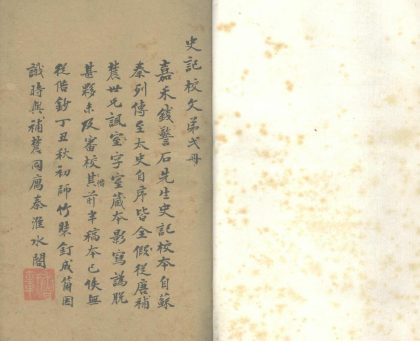 史記校文第弍冊
嘉禾錢警石先生史記校本自蘇
秦列傳至太史自序皆全假從唐補
農世兄諷字室藏本影寫譌脫
甚夥未及審校其前半稿本已佚無
從借鈔丁丑秋初師竹裝釘成蕢因
識時與補農同寓秦淮水閣